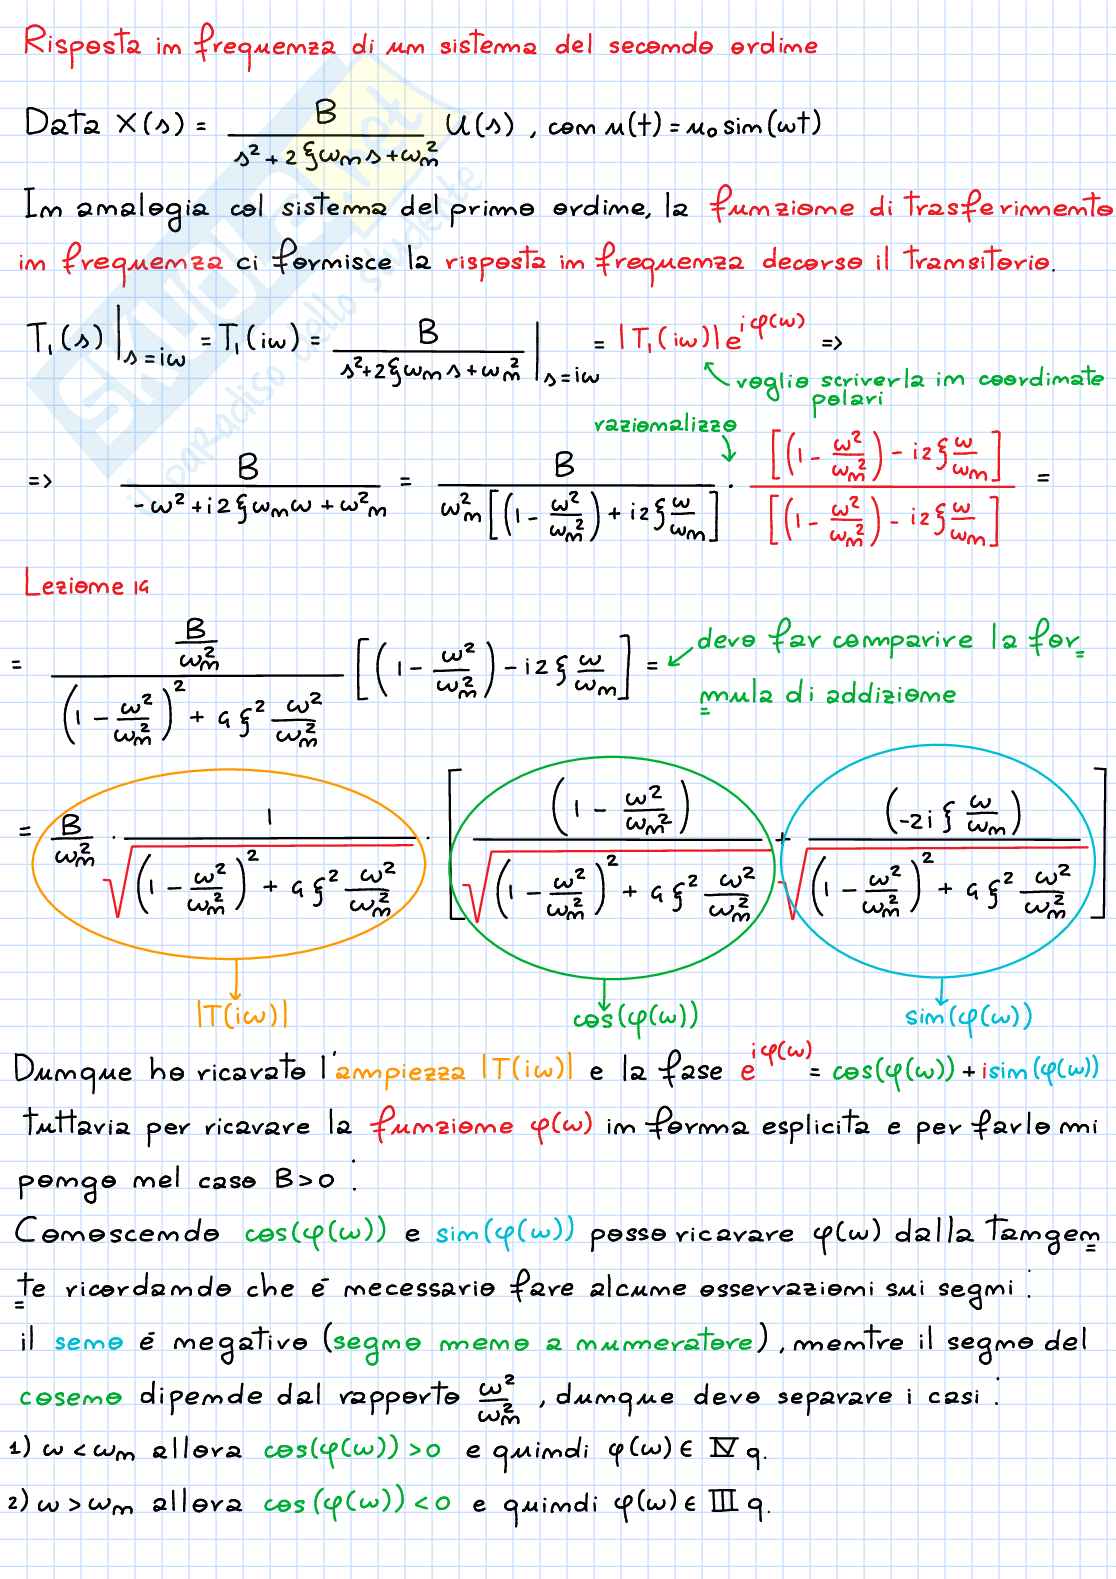 Risposta in frequenza di un sistema del secondo ordine
Data X(s) = B / (s² + 2ξωₙs + ωₙ²) U(s) , con u(t) = u₀ sin(ωt)
In analogia col sistema del primo ordine, la funzione di trasferimento
in frequenza ci fornisce la risposta in frequenza decorso il transitorio.
T₁(s)|ₛ₌ᵢω = T₁(iω) = B / (s² + 2ξωₙs + ωₙ²) |ₛ₌ᵢω = |T₁(iω)| e^{iφ(ω)} =>
voglio scriverla in coordinate
polari
razionalizzo
=> B / (-ω² + i2ξωₙω + ω²ₙ) = B / (ωₙ² [(1 - ω²/ωₙ²) + i2ξ ω/ωₙ]) · [(1 - ω²/ωₙ²) - i2ξ ω/ωₙ] / [(1 - ω²/ωₙ²) - i2ξ ω/ωₙ] =
Lezione 14
= (B/ωₙ²) / ((1 - ω²/ωₙ²)² + 4ξ² ω²/ωₙ²) [(1 - ω²/ωₙ²) - i2ξ ω/ωₙ] =
devo far comparire la for
mula di addizione
= B/ωₙ² · 1 / √((1 - ω²/ωₙ²)² + 4ξ² ω²/ωₙ²) · [(1 - ω²/ωₙ²) / √((1 - ω²/ωₙ²)² + 4ξ² ω²/ωₙ²) + (-2i ξ ω/ωₙ) / √((1 - ω²/ωₙ²)² + 4ξ² ω²/ωₙ²)]
|T(iω)| cos(φ(ω)) sin(φ(ω))
Dunque ho ricavato l'ampiezza |T(iω)| e la fase e^{iφ(ω)} = cos(φ(ω)) + isin(φ(ω))
tuttavia per ricavare la funzione φ(ω) in forma esplicita e per farlo mi
pongo nel caso B>0 :
Conoscendo cos(φ(ω)) e sin(φ(ω)) posso ricavare φ(ω) dalla tangen
te ricordando che è necessario fare alcune osservazioni sui segni :
il seno è negativo (segno meno a numeratore), mentre il segno del
coseno dipende dal rapporto ω²/ωₙ² , dunque devo separare i casi :
1) ω < ωₙ allora cos(φ(ω)) > 0 e quindi φ(ω) ∈ IV q.
2) ω > ωₙ allora cos(φ(ω)) < 0 e quindi φ(ω) ∈ III q.
Skuola.net
il paradiso dello studente